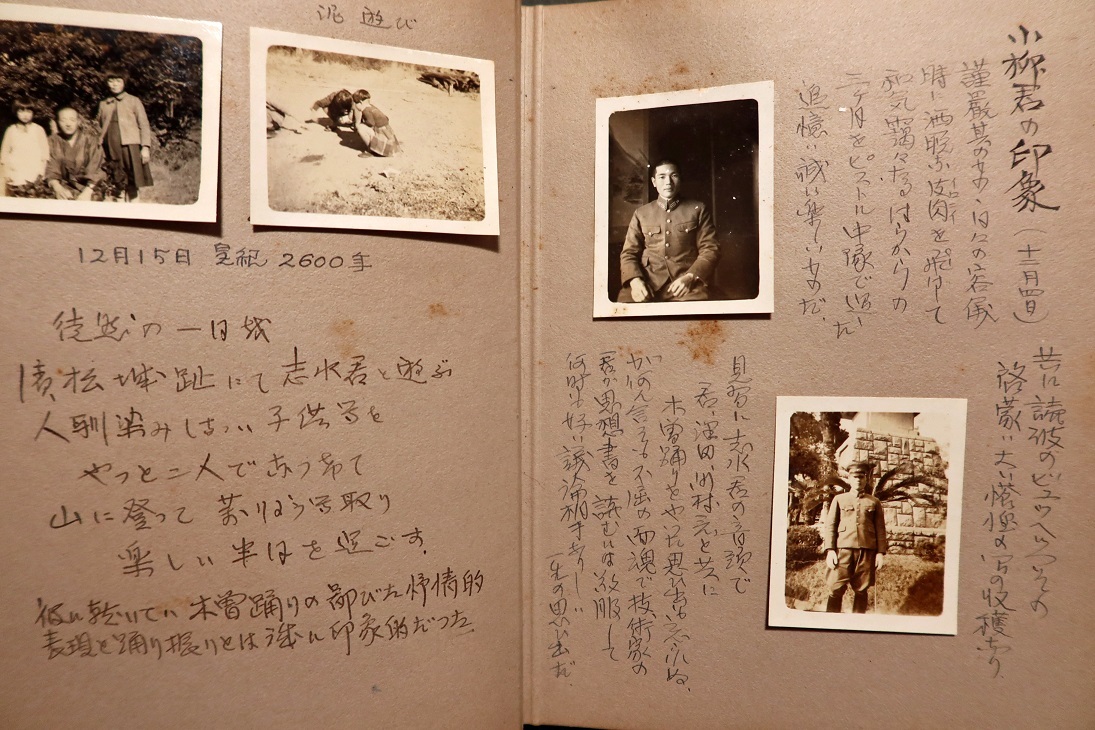 泥遊び
12月15日 皇紀 2600年
徒然の一日を
濱松城趾にて志水君と遊ぶ
人馴染みしない子供等を
やっと二人で
山に登って 取り
楽しい半日を過ごす。
彼に聴いてい木曽踊りの鄙びた抒情的
表現と踊り振りとは誠に印象的だった
小柳君の印象(十二月四日)
謹厳其のもの、日々の容儀
時に洒脱な皮肉を飛ばして
和気靄々たるはらからの
三ヶ月をピストル中隊で過した
追憶は誠に楽しいものだ。
共に読破のビュッヘについての
啓蒙に大い 収穫なり
見習に志水君の音頭で
君、濱田、川村元と共に
木曽踊りをやった思い出は忘れぬ。
が何んと言うても不屈の面魂で技術家の
君が思想書を読むには敬服して
何時も好い議論相手なりしい
一生の思い出だ。